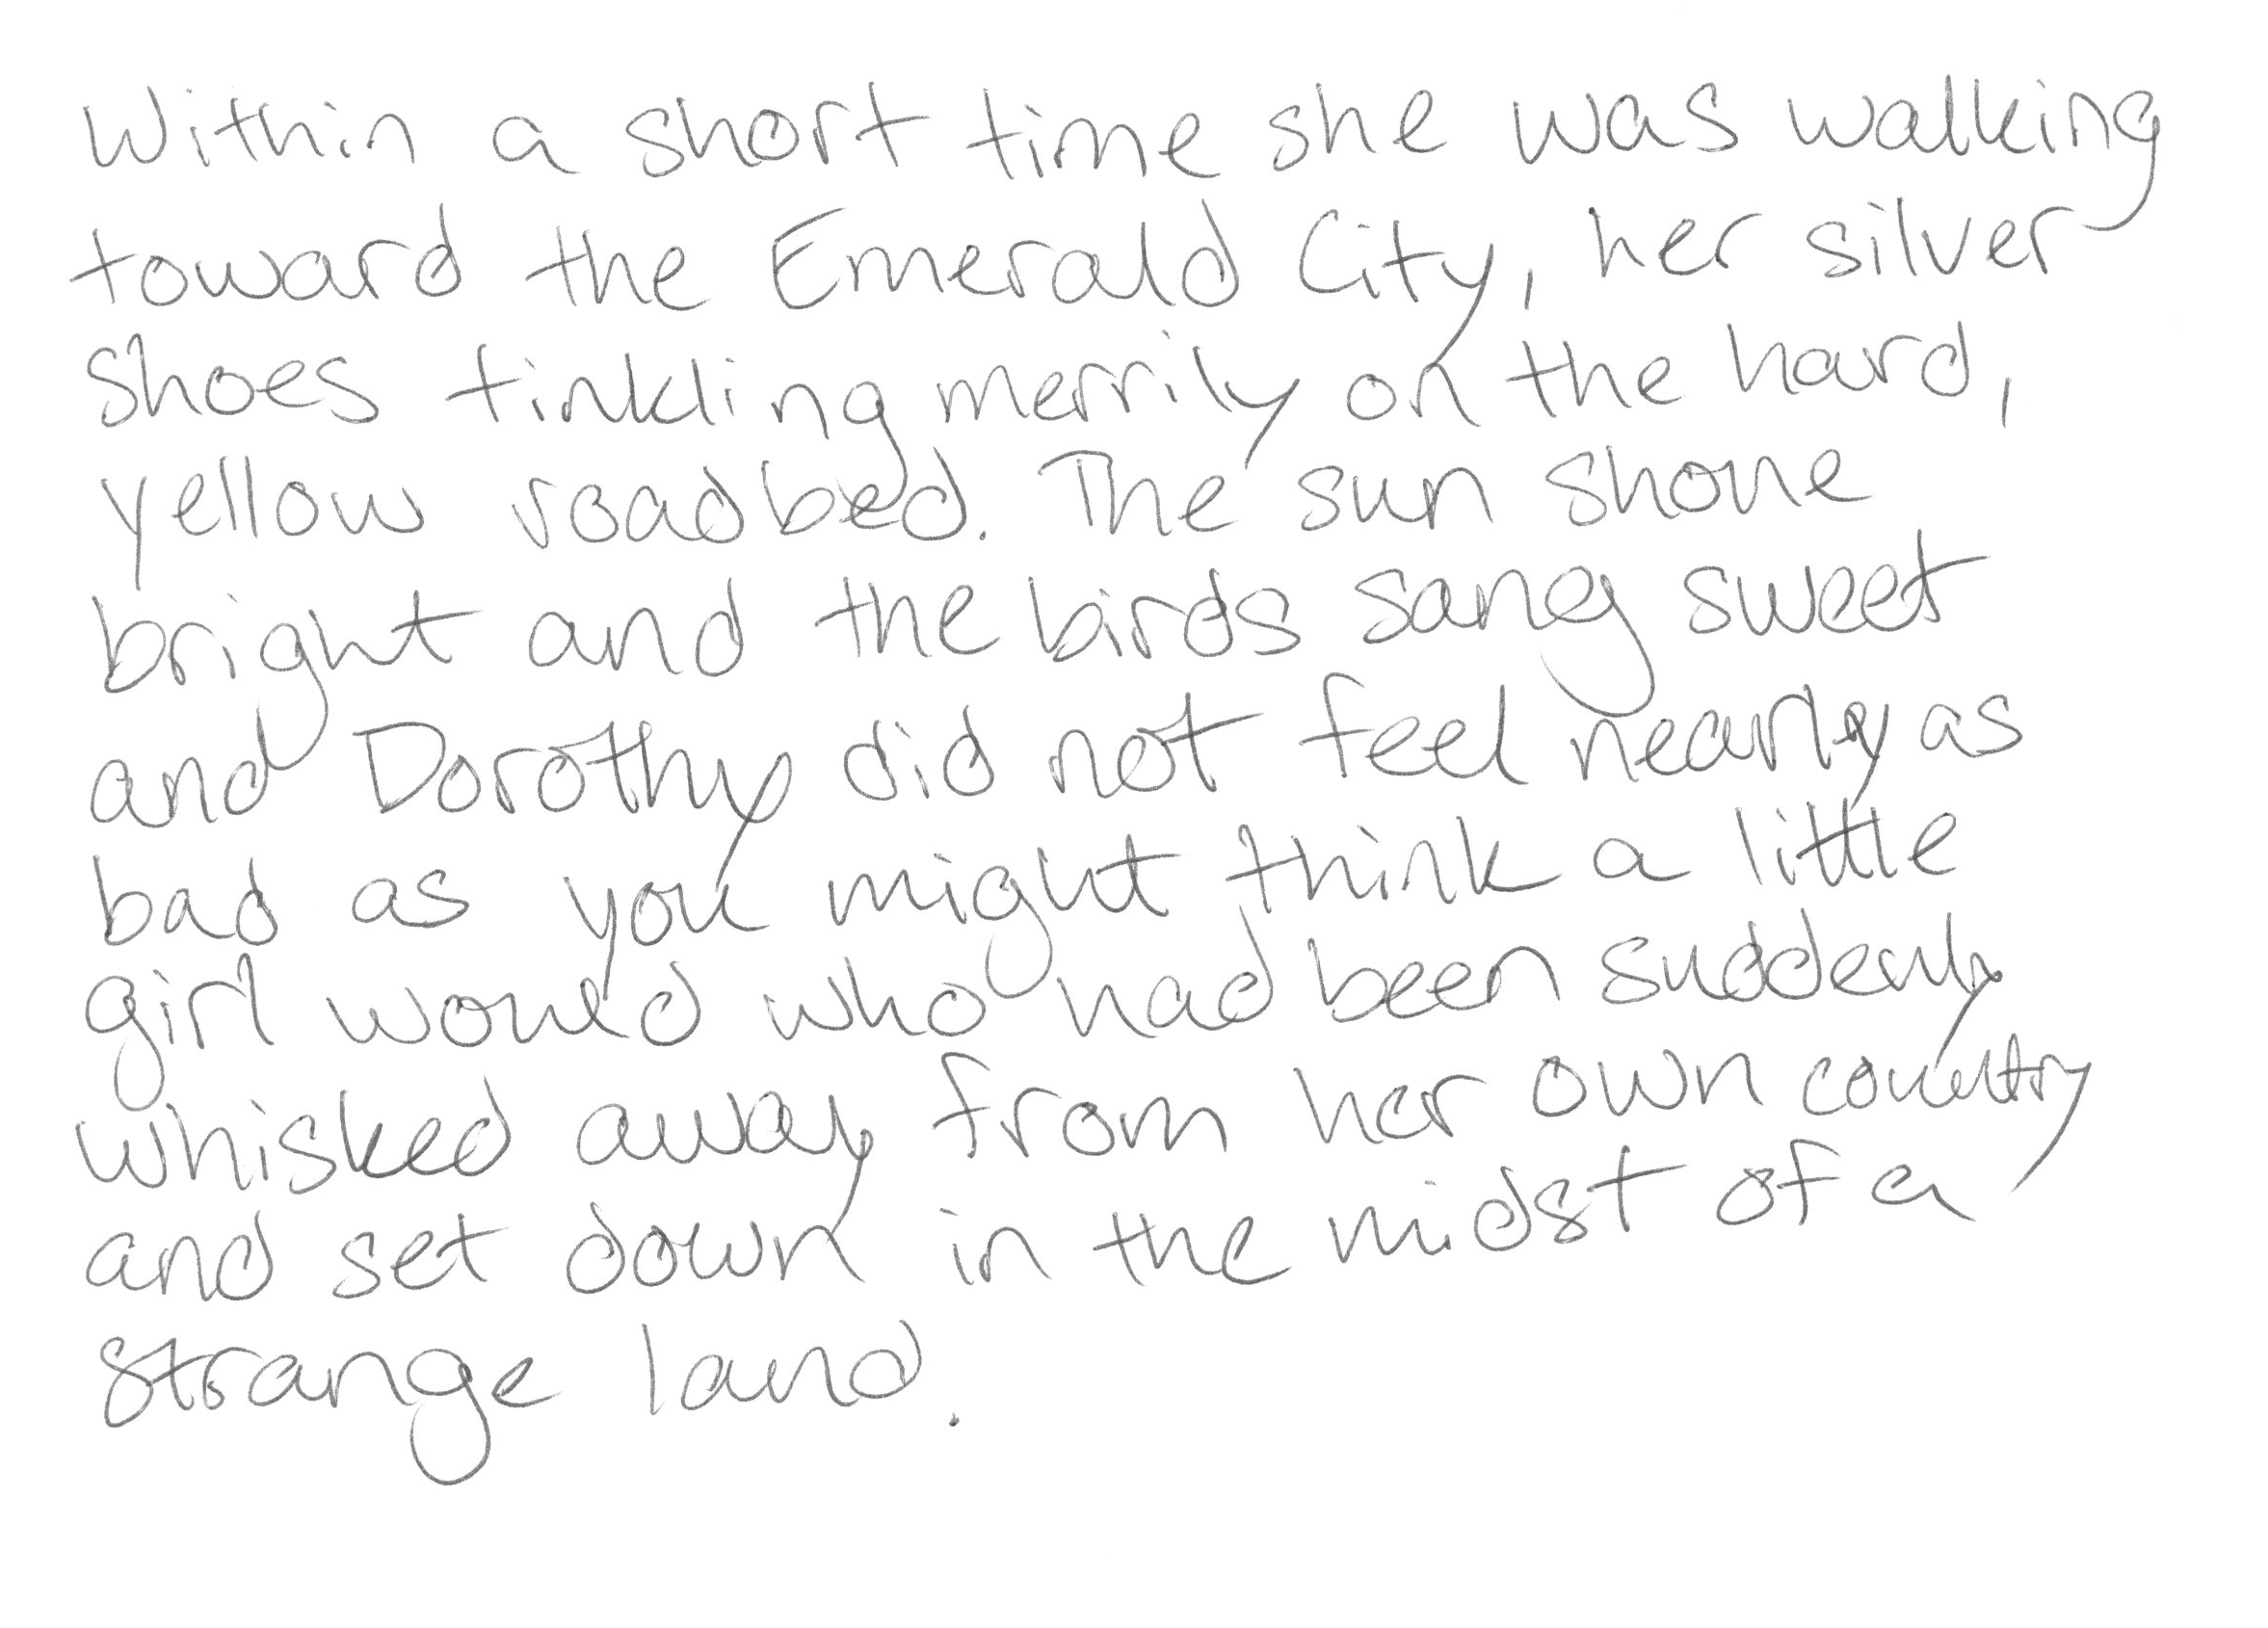 Within a short time she was walking
toward the Emerald City, her silver
shoes tinkling merrily on the hard,
yellow roadbed. The sun shone
bright and the birds sang sweet
and Dorothy did not feel nearly as
bad as you might think a little
girl would who had been suddenly
whisked away from her own country
and set down in the midst of a
strange land.